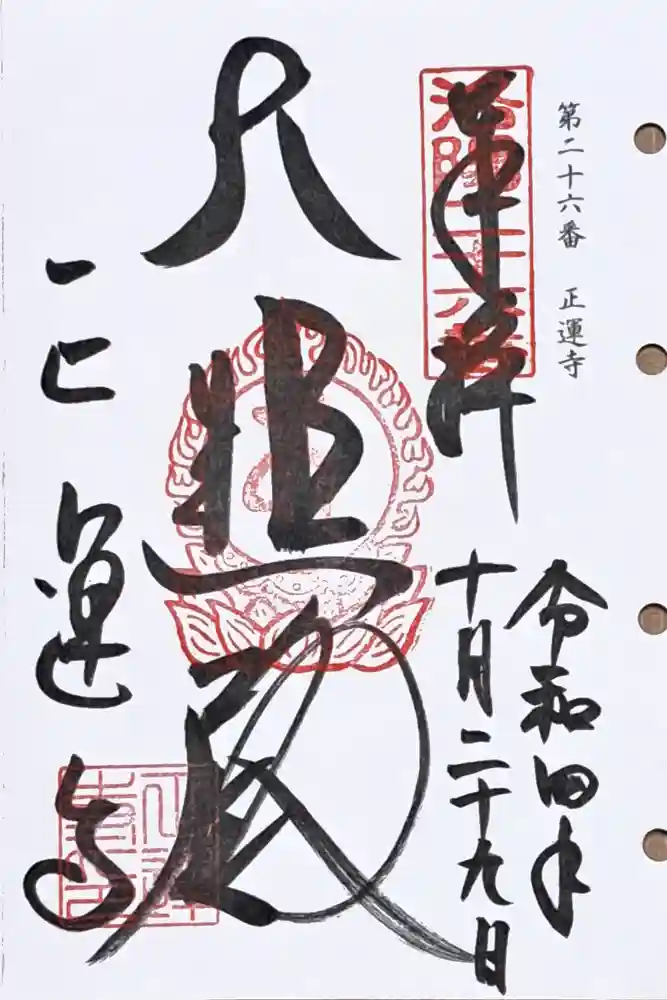 第二十六番 正運寺
奉拝
洛陽二十六番
令和四年
十月二十九日
大悲殿
正運寺